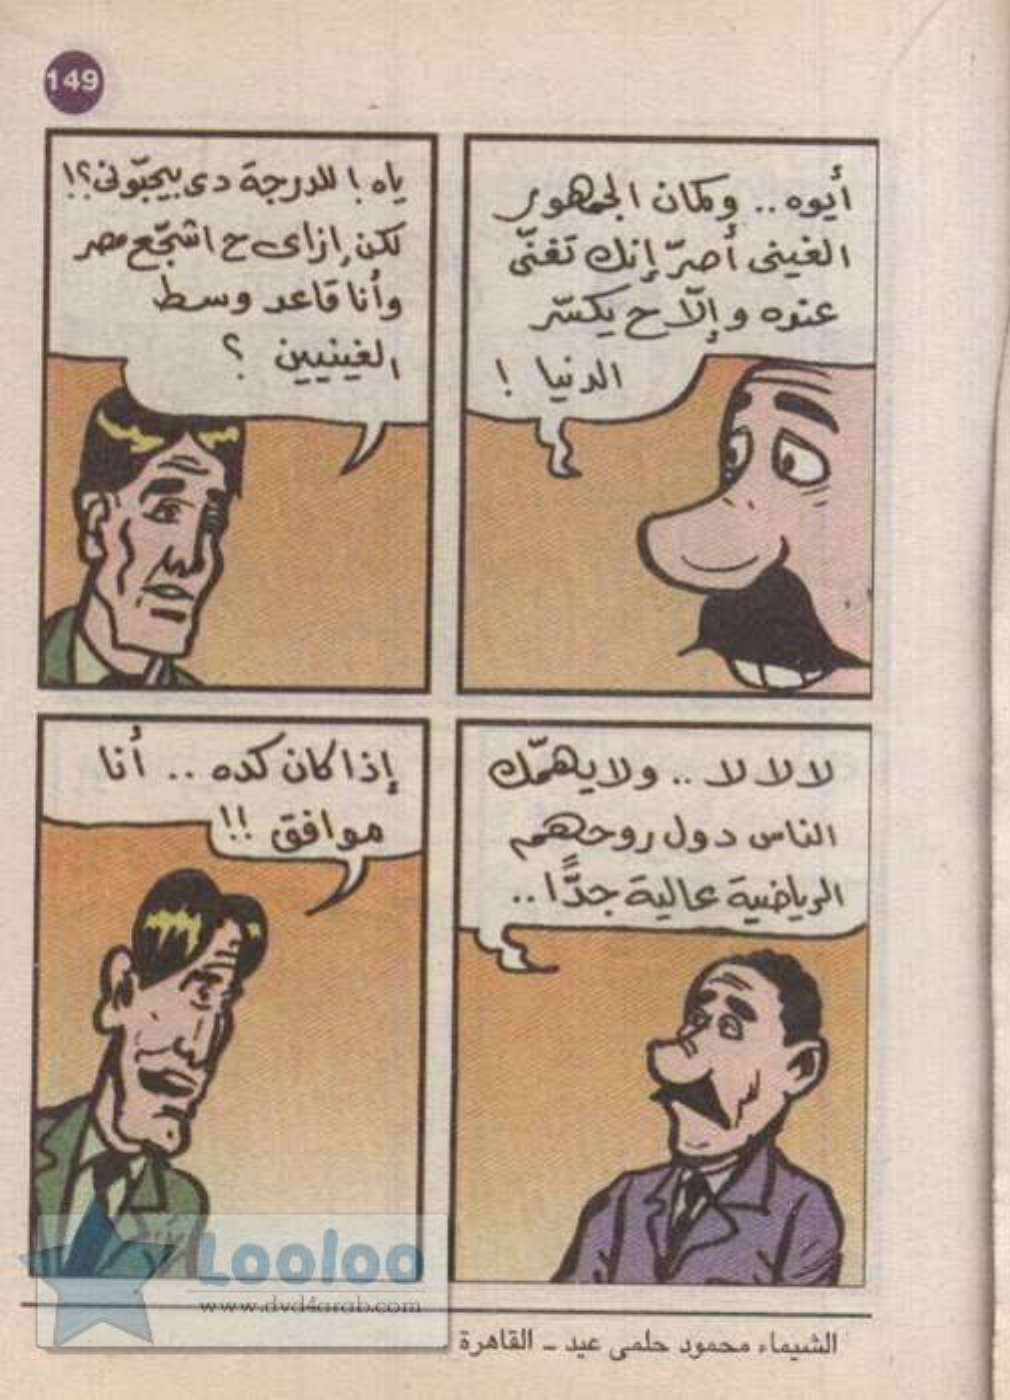 149
أيوه .. وكمان الجمهور
الغينى أصرّ إنك تغنّى
عنده وإلّا ح يكسّر
الدنيا !
ياه ! للدرجة دى بيحبّونى ؟!
لكن إزاى ح اشجّع مصر
وأنا قاعد وسط
الغينيين ؟
لا لا لا .. ولا يهمّك
الناس دول روحهم
الرياضية عالية جدًّا ..
إذا كان كده .. أنا
موافق !!
Looloo
www.dvd4arab.com
الشيماء محمود حلمى عيد - القاهرة